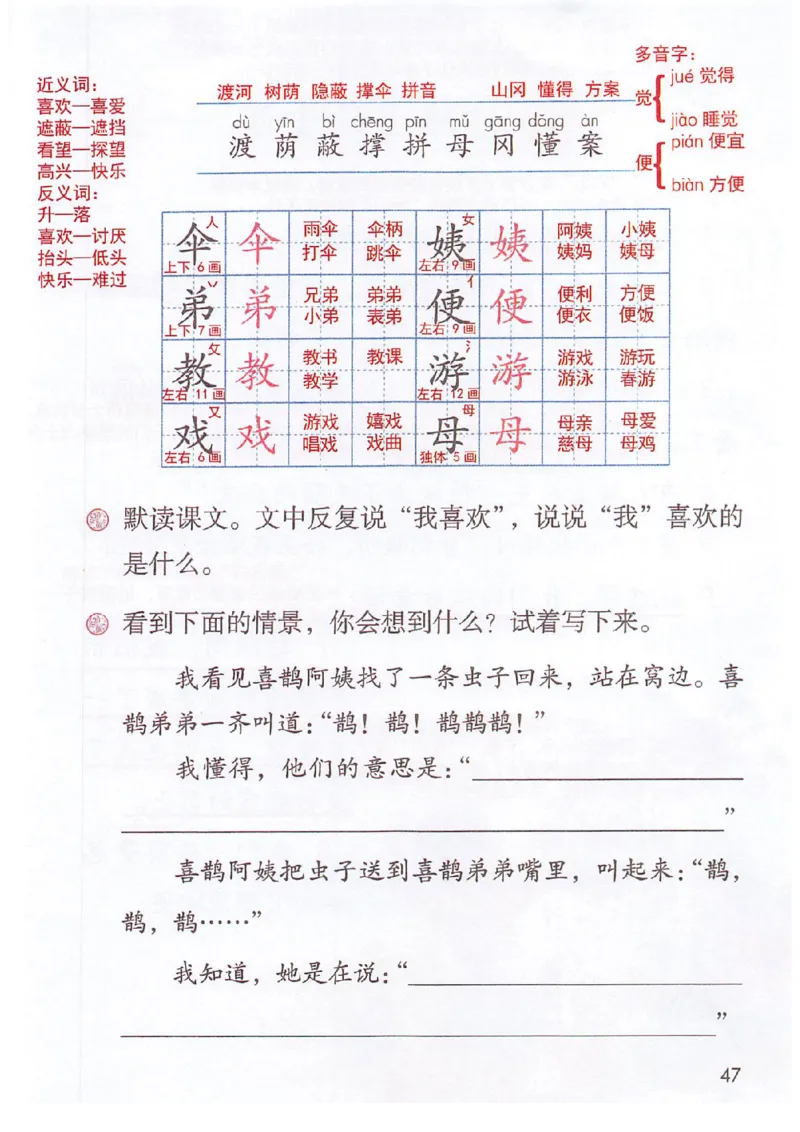 多音字：
近义词：
喜欢—喜爱
遮蔽—遮挡
看望—探望
高兴—快乐
反义词：
升—落
喜欢—讨厌
抬头—低头
快乐—难过
渡河 树荫 隐蔽 撑伞 拼音 山冈 懂得 方案
dù yīn bì chēng pīn mǔ gāng dǒng àn
渡 荫 蔽 撑 拼 母 冈 懂 案
觉 jué 觉得
jiào 睡觉
便 pián 便宜
biàn 方便
伞 人 上下 6画 伞 雨伞 伞柄 姨 女 左右 9画 姨 阿姨 小姨
打伞 跳伞 姨妈 姨母
弟 丷 上下 7画 弟 兄弟 弟弟 便 亻 左右 9画 便 便利 方便
小弟 表弟 便衣 便饭
教 攵 左右 11画 教 教书 教课 游 氵 左右 12画 游 游戏 游玩
教学 游泳 春游
戏 又 左右 6画 戏 游戏 嬉戏 母 母 独体 5画 母 母亲 母爱
唱戏 戏曲 慈母 母鸡
默读课文。文中反复说“我喜欢”，说说“我”喜欢的
是什么。
看到下面的情景，你会想到什么？试着写下来。
我看见喜鹊阿姨找了一条虫子回来，站在窝边。喜
鹊弟弟一齐叫道：“鹊！鹊！鹊鹊鹊！”
我懂得，他们的意思是：“
”
喜鹊阿姨把虫子送到喜鹊弟弟嘴里，叫起来：“鹊，
鹊，鹊……”
我知道，她是在说：“
”
47